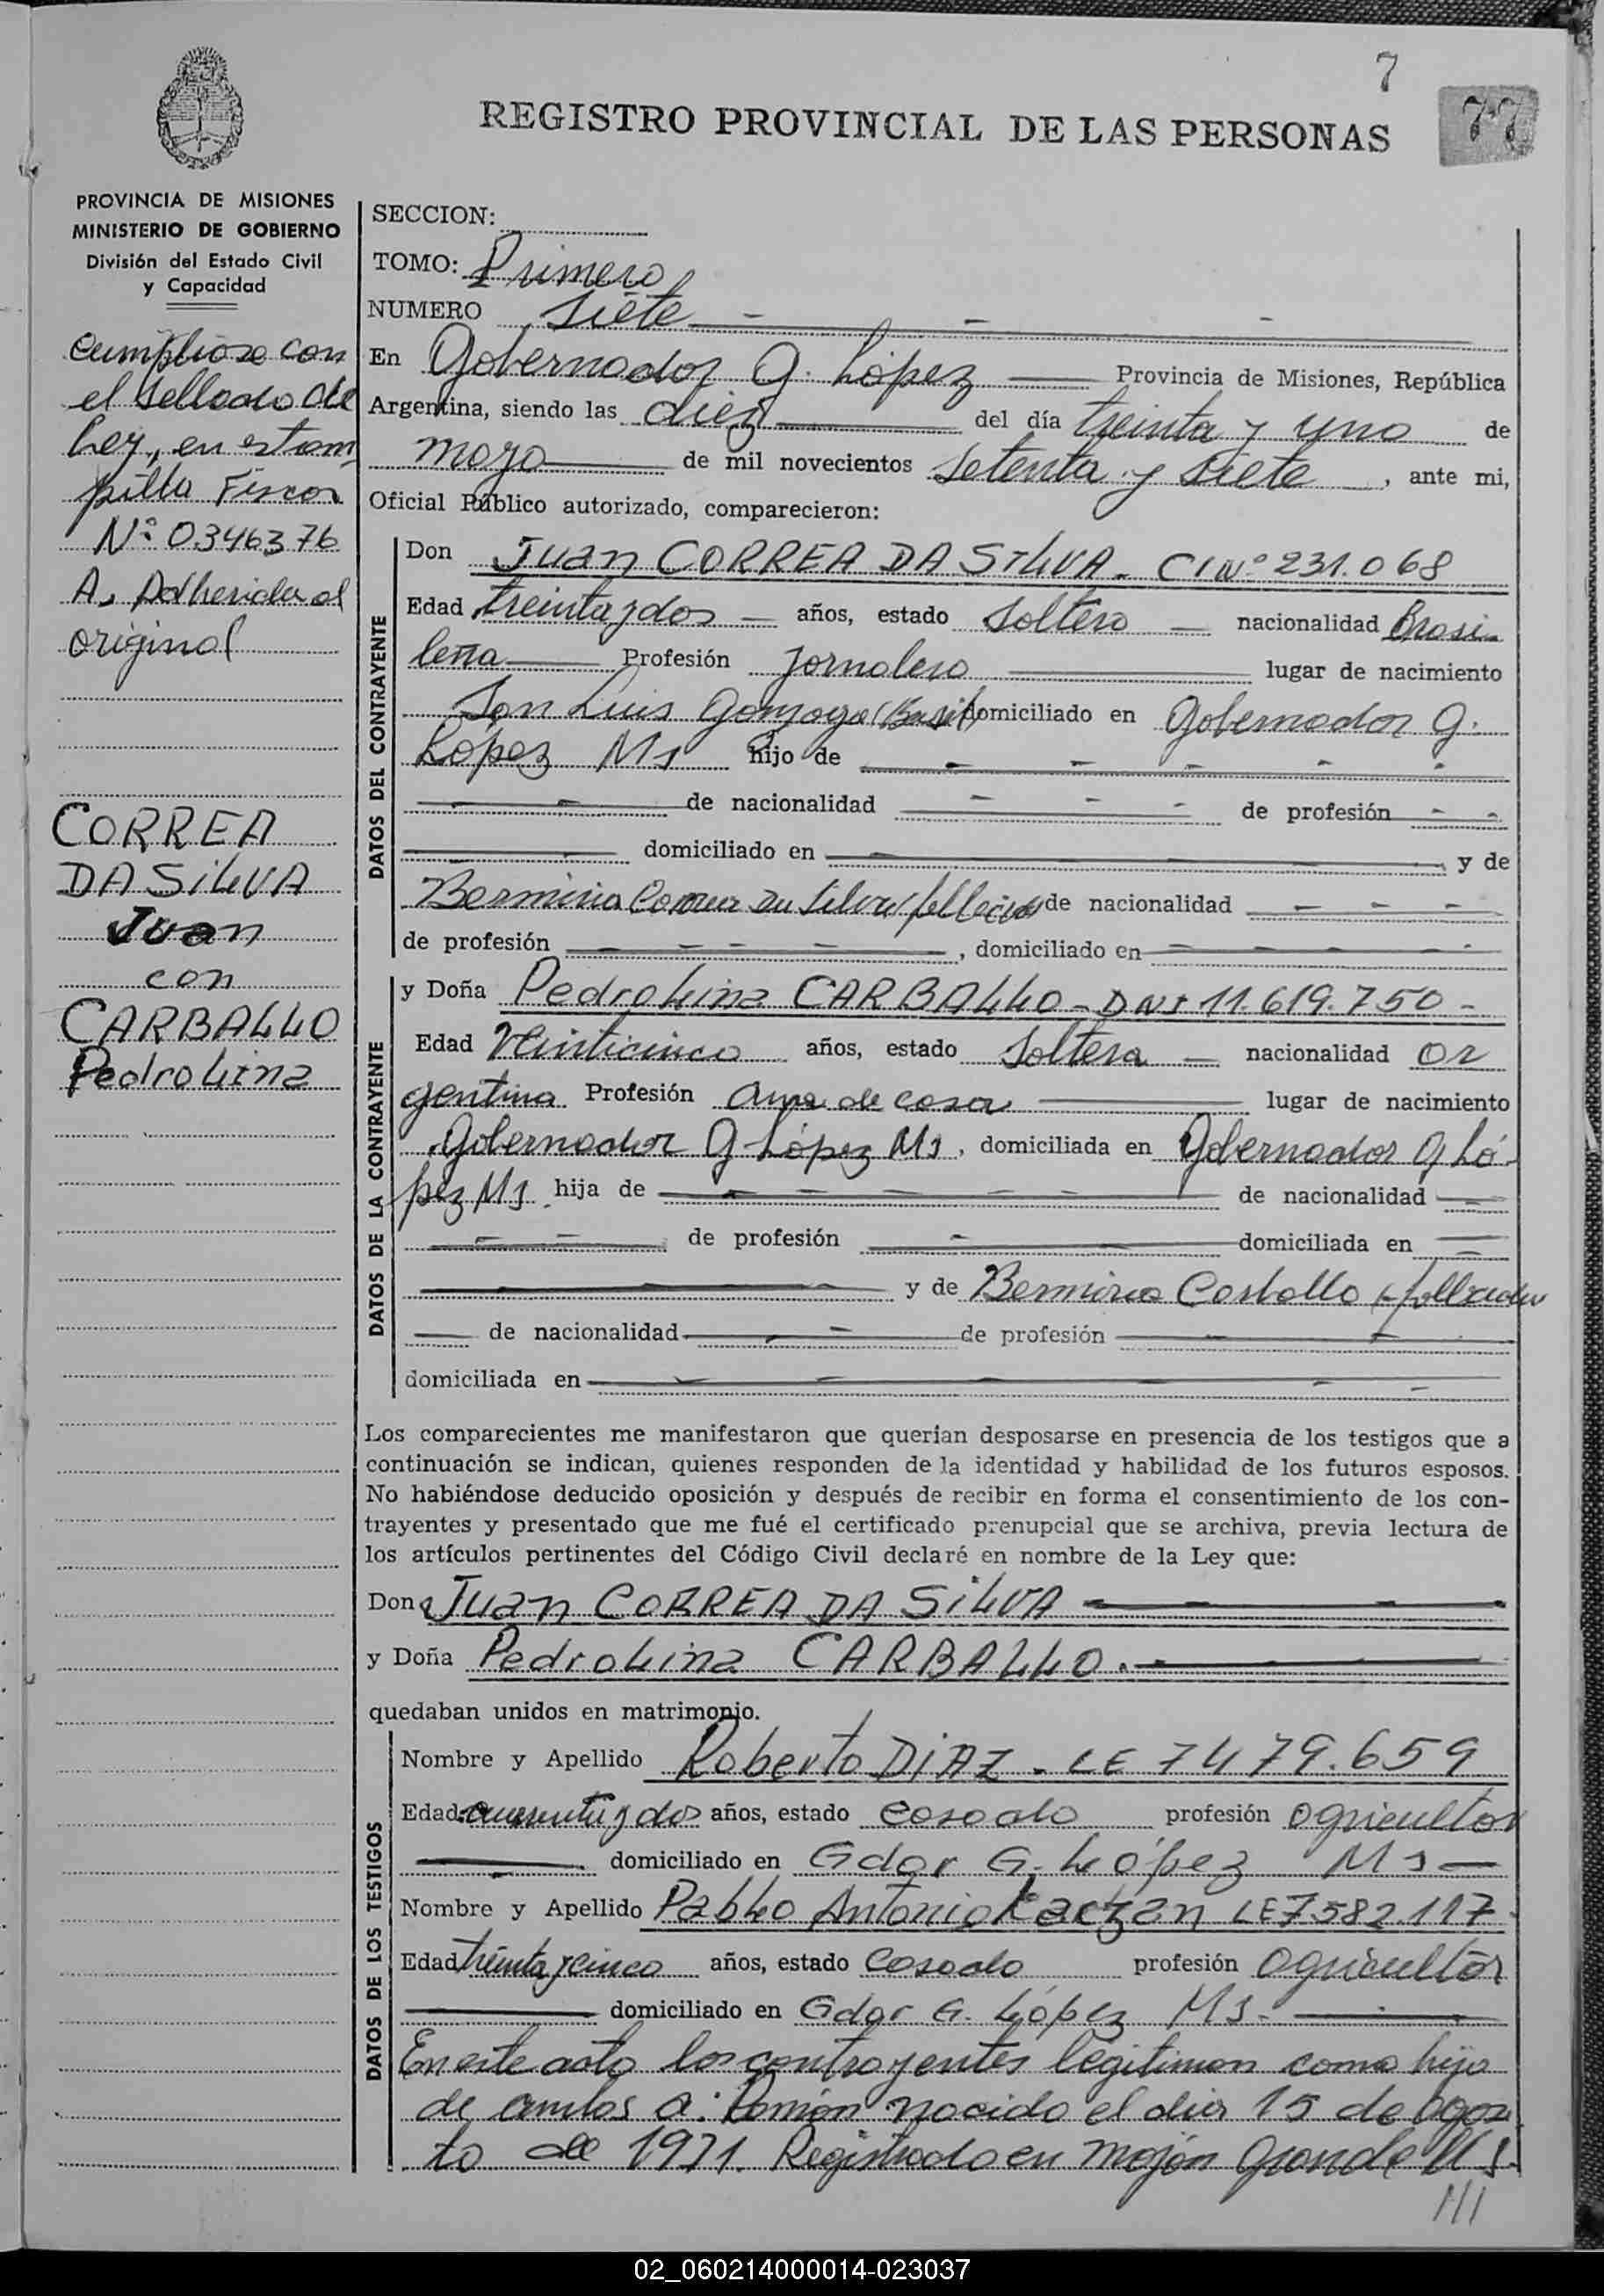 7
REGISTRO PROVINCIAL DE LAS PERSONAS
77
PROVINCIA DE MISIONES
MINISTERIO DE GOBIERNO
División del Estado Civil
y Capacidad
Cumplióse con
el Sellado de
Ley, en estam
pilla Fiscal
Nº 0346376
A, Adherida al
original
CORREA
DA SILVA
Juan
con
CARBALLO
Pedrolina
SECCION:
TOMO: Primero
NUMERO Siete
En Gobernador G. López Provincia de Misiones, República
Argentina, siendo las diez del día treinta y uno de
mayo de mil novecientos Setenta y Siete, ante mi,
Oficial Público autorizado, comparecieron:
DATOS DEL CONTRAYENTE
Don Juan CORREA DA SILVA - CI Nº 231.068
Edad treinta y dos años, estado Soltero nacionalidad Brasi
leña Profesión Jornalero lugar de nacimiento
San Luis Gonzaga (Brasil) domiciliado en Gobernador G.
López Ms hijo de
de nacionalidad de profesión
domiciliado en y de
Correa Da Silva de nacionalidad
de profesión , domiciliado en
DATOS DE LA CONTRAYENTE
y Doña Pedrolina CARBALLO - DNI 11.619.750 -
Edad Veinticinco años, estado Soltera nacionalidad ar
gentina Profesión Ama de casa lugar de nacimiento
Gobernador G López Ms, domiciliada en Gobernador G Ló
pez Ms. hija de de nacionalidad
de profesión domiciliada en
y de Carballo
de nacionalidad de profesión
domiciliada en
Los comparecientes me manifestaron que querian desposarse en presencia de los testigos que a
continuación se indican, quienes responden de la identidad y habilidad de los futuros esposos.
No habiéndose deducido oposición y después de recibir en forma el consentimiento de los con-
trayentes y presentado que me fué el certificado prenupcial que se archiva, previa lectura de
los artículos pertinentes del Código Civil declaré en nombre de la Ley que:
Don Juan CORREA DA SILVA
y Doña Pedrolina CARBALLO.
quedaban unidos en matrimonio.
DATOS DE LOS TESTIGOS
Nombre y Apellido Roberto DIAZ - LE 7479.659
Edad y dos años, estado Casado profesión agricultor
domiciliado en Gdor G. López Ms
Nombre y Apellido Pablo Antonio LE 7582.117
Edad treinta y cinco años, estado Casado profesión agricultor
domiciliado en Gdor G. López Ms.
En este acto los contrayentes legitiman como hijo
de ambos a: Ramón nacido el día 15 de agos
to de 1971. Registrado en Mojón Grande Ms.
///
02_060214000014-023037